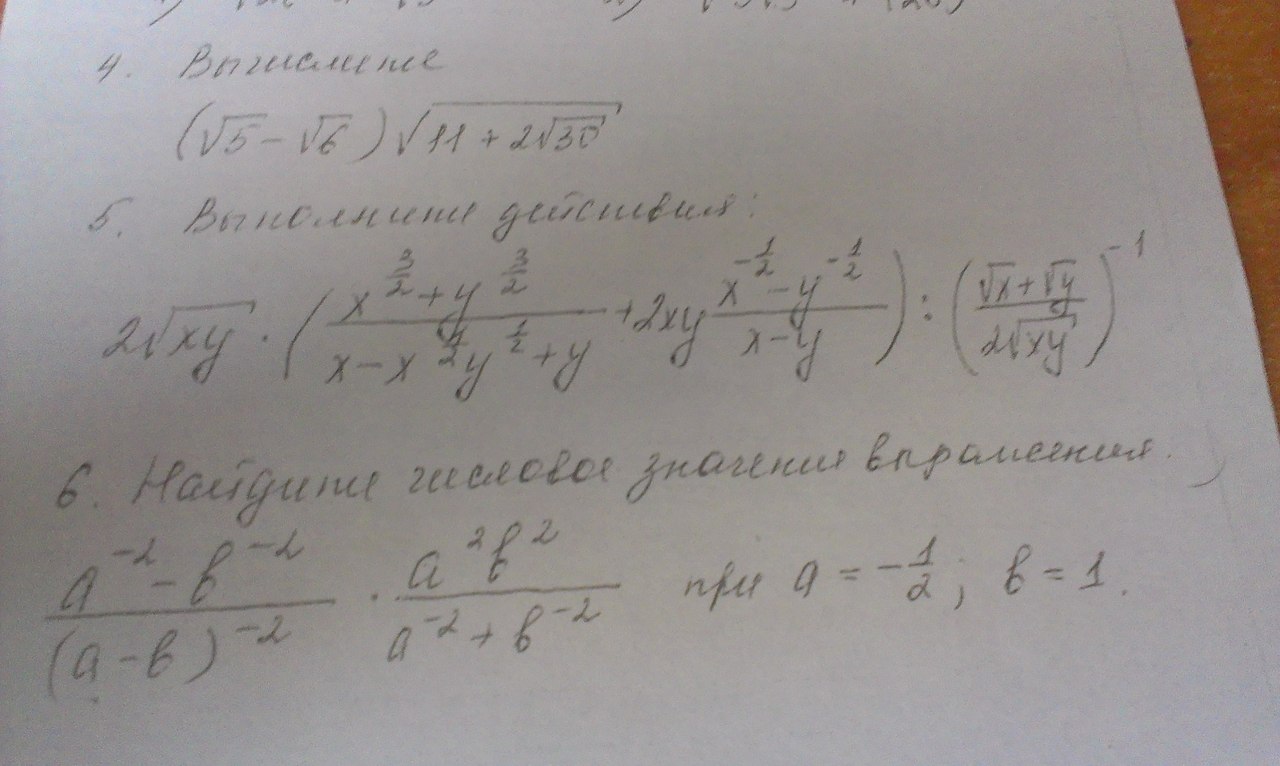 4. Вычислите
(√5 - √6)√(11 + 2√30)
5. Выполните действия:
2√(xy) · ((x^(3/2) + y^(3/2))/(x - x^(1/2)y^(1/2) + y) + 2xy (x^(-1/2) - y^(-1/2))/(x - y)) : ((√x + √y)/(2√(xy)))^(-1)
6. Найдите числовое значения выражения.
(a^(-2) - b^(-2))/((a - b)^(-2)) · (a^2b^2)/(a^(-2) + b^(-2)) при a = -1/2; b = 1.